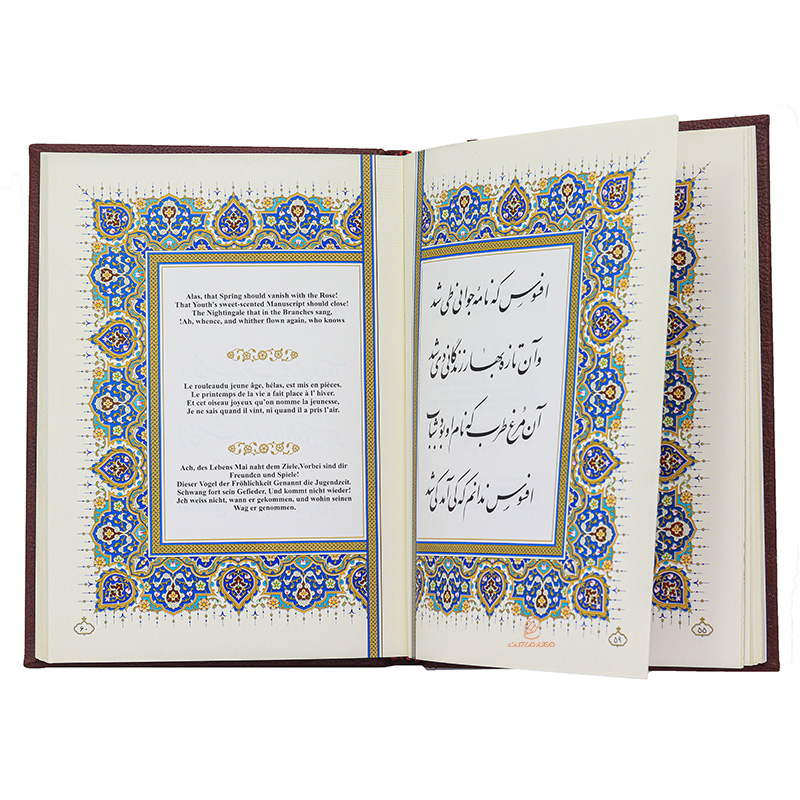 افسوس که نامهٔ جوانی طی شد
وآن تازه بهار زندگانی دی شد
آن مرغ طرب که نام او بود شباب
افسوس ندانم که کی آمد کی شد
۵۹
۵۵
Alas, that Spring should vanish with the Rose!
That Youth's sweet-scented Manuscript should close!
The Nightingale that in the Branches sang,
!Ah, whence, and whither flown again, who knows
Le rouleaudu jeune âge, hélas, est mis en pièces.
Le printemps de la vie a fait place à l' hiver.
Et cet oiseau joyeux qu'on nomme la jeunesse,
Je ne sais quand il vint, ni quand il a pris l'air.
Ach, des Lebens Mai naht dem Ziele,Vorbei sind dir
Freunden und Spiele!
Dieser Vogel der Fröhlichkeit Genannt die Jugendzeit.
Schwang fort sein Gefieder, Und kommt nicht wieder!
Jch weiss nicht, wann er gekommen, und wohin seinen
Wag er genommen.
۶۰